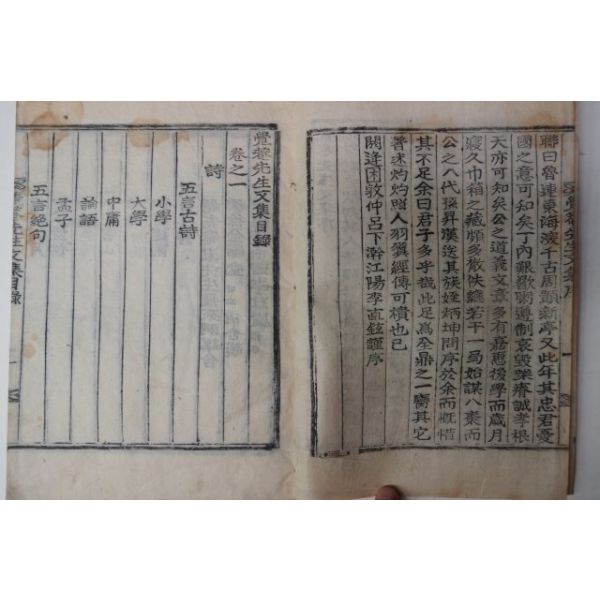 聯曰魯連東海渡千古周顗新亭又此年其忠君憂
國之意可知矣丁內艱歠粥遵制哀毀欒瘠誠孝根
天亦可知矣公之道義文章多有嘉惠後學而歲月
寢久巾箱之藏頗多散佚纔若干一局始謀入棗而
公之八代孫昇漢送其族姪炳坤問序於余而慨惜
其不足余曰君子多乎哉此足爲全鼎之一臠其它
著述灼灼照人羽翼經傳可樻也已
閼逢困敦仲呂下澣江陽李直鉉謹序
覺菴先生文集序
一
覺菴先生文集目錄
卷之一
詩
五言古詩
小學
大學
中庸
論語
孟子
五言絕句
覺菴先生文集目錄
一